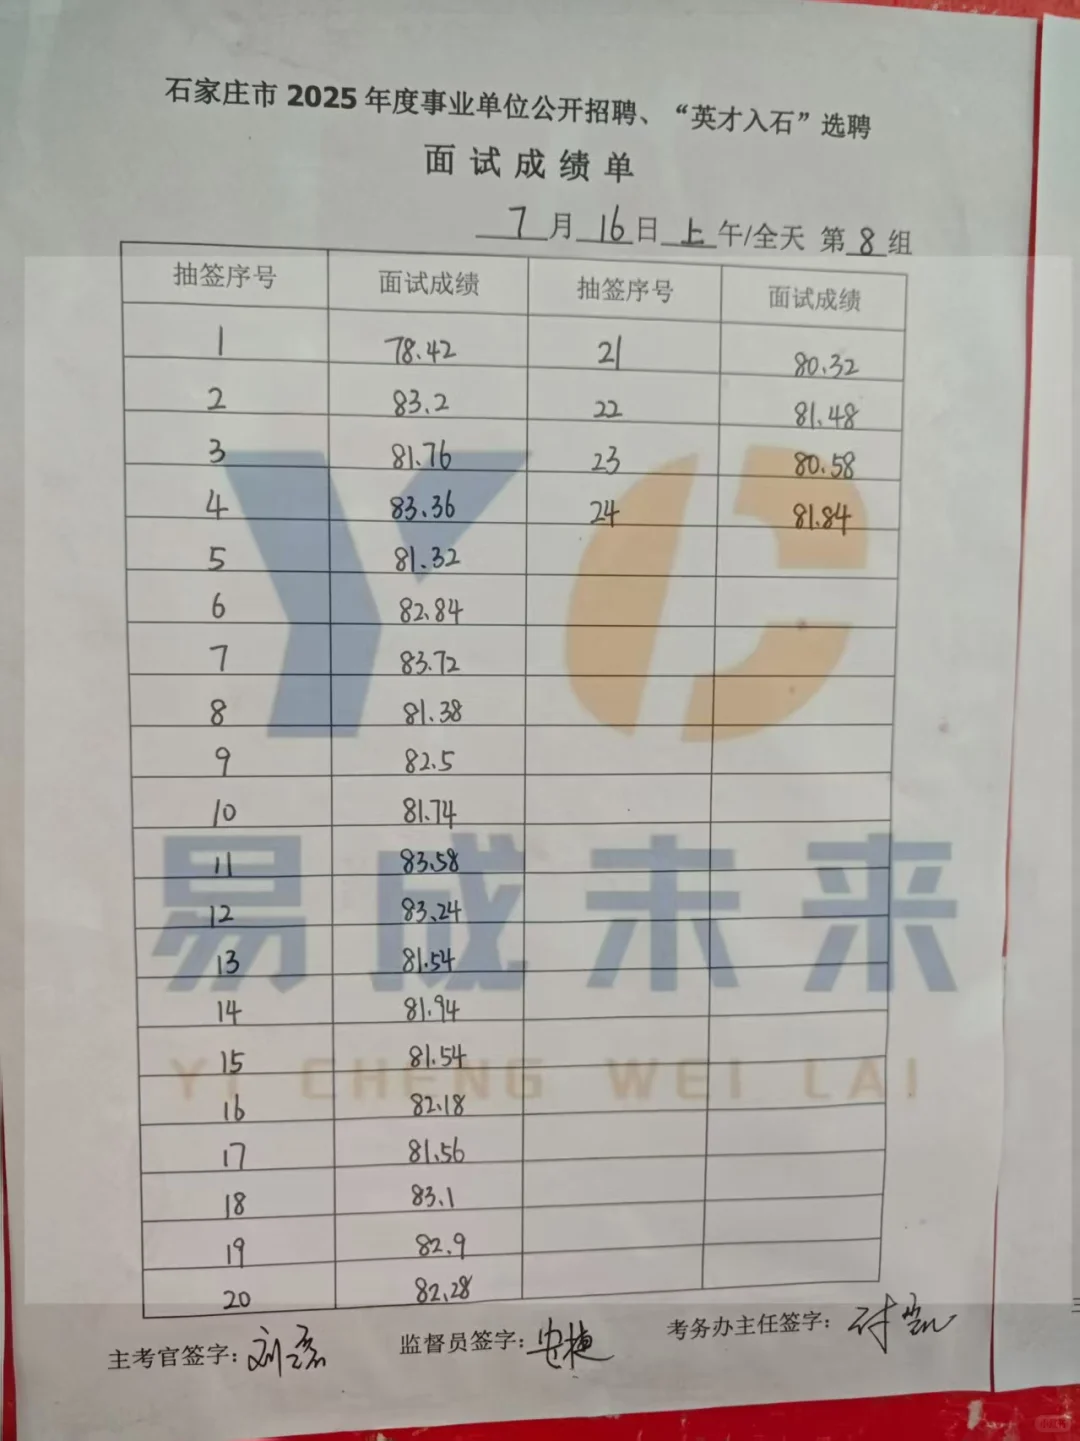 石家庄市 2025 年度事业单位公开招聘、“英才入石”选聘
面试成绩单
7月16日上午/全天 第8组
抽签序号 面试成绩 抽签序号 面试成绩
1 78.42 21 80.32
2 83.2 22 81.48
3 81.76 23 80.58
4 83.36 24 81.84
5 81.32
6 82.84
7 83.72
8 81.38
9 82.5
10 81.74
11 83.58
12 83.24
13 81.54
14 81.94
15 81.54
16 82.18
17 81.56
18 83.1
19 82.9
20 82.28
主考官签字： 监督员签字： 考务办主任签字：
YC
易成未来
YI CHENG WEI LAI